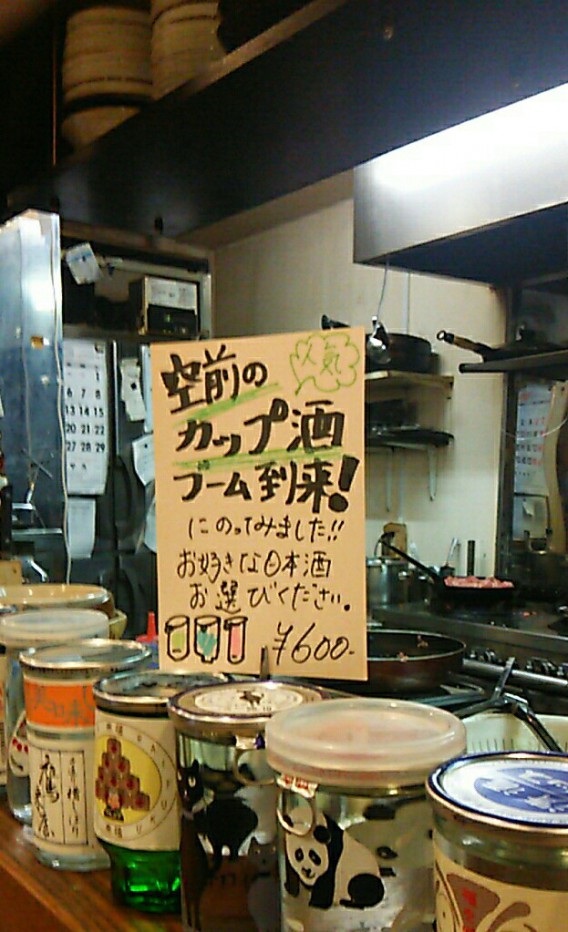 人気
空前の
カップ酒
ブーム到来!
にのってみました!!
お好きな日本酒
お選びください。
¥600-
1
6 7 8
13 14 15
20 21 22
27 28 29